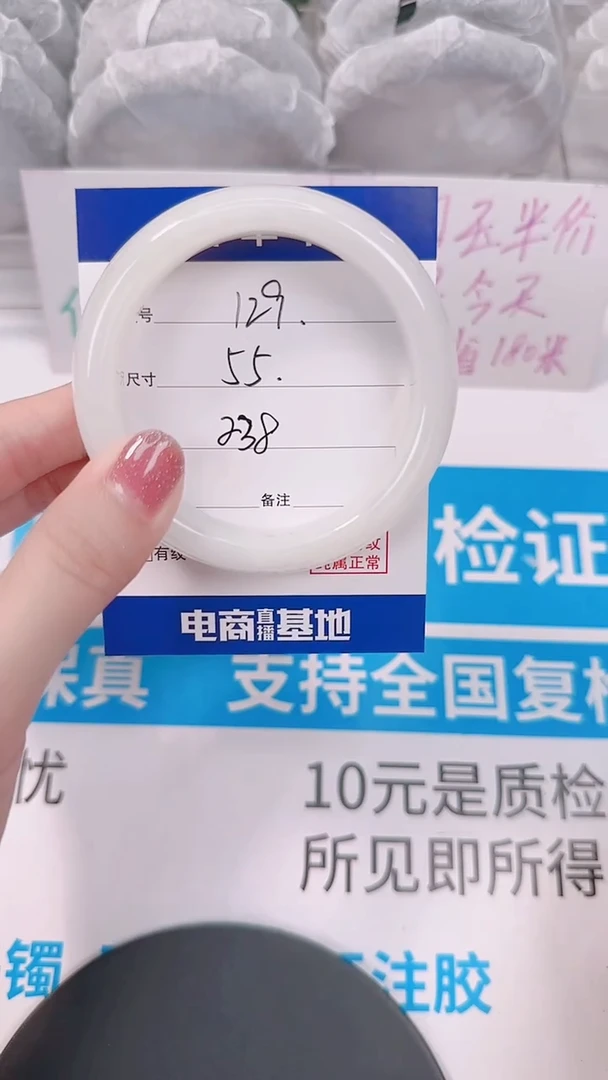 玉半价
今天
省180米
号 129.
尺寸 55.
238
备注
有纹
纹属正常
电商直播基地
检证
保真 支持全国复检
忧 10元是质检
所见即所得
镯
注胶